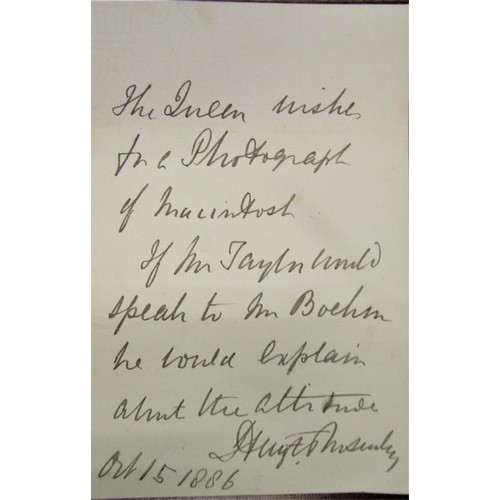 The Queen wishes
for a Photograph
of Macintosh
If Mr Taylor would
speak to Mr Boehm
he would explain
about the attitude
Oct 15 1886